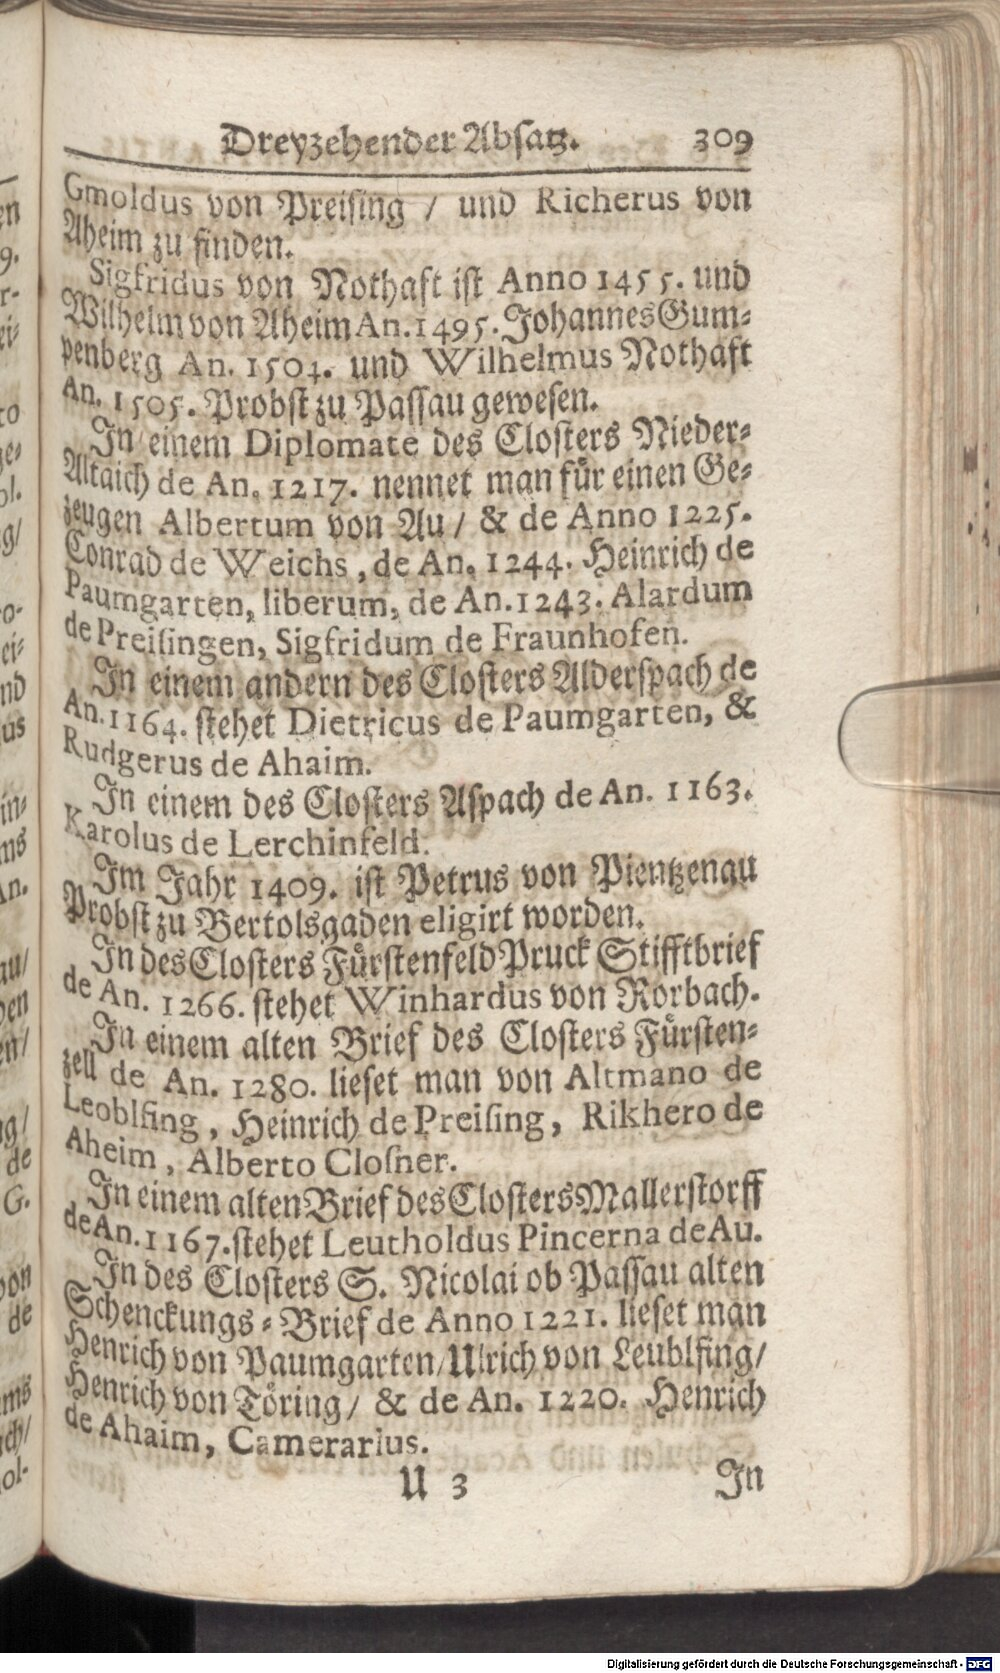 Dreyzehender Absatz. 309
Gmoldus von Preising / und Richerus von
Aheim zu finden.
Sigfridus von Nothaft ist Anno 1455. und
Wilhelm von Aheim An. 1495. Johannes Gum-
penberg An. 1504. und Wilhelmus Nothaft
An. 1505. Probst zu Passau gewesen.
In einem Diplomate des Closters Nieder-
Altaich de An. 1217. nennet man für einen Ge-
zeugen Albertum von Au / & de Anno 1225.
Conrad de Weichs, de An. 1244. Heinrich de
Paumgarten, liberum, de An. 1243. Alardum
de Preisingen, Sigfridum de Fraunhofen.
In einem andern des Closters Alderspach de
An. 1164. stehet Dietricus de Paumgarten, &
Rudgerus de Ahaim.
In einem des Closters Aspach de An. 1163.
Karolus de Lerchinfeld.
Im Jahr 1409. ist Petrus von Pientzenau
Probst zu Bertolsgaden eligirt worden.
In des Closters Fürstenfeld Pruck Stifftbrief
de An. 1266. stehet Winhardus von Rorbach.
In einem alten Brief des Closters Fürsten-
zell de An. 1280. lieset man von Altmano de
Leoblfing, Heinrich de Preising, Rikhero de
Aheim, Alberto Closner.
In einem alten Brief des Closters Mallerstorff
de An. 1167. stehet Leutholdus Pincerna de Au.
In des Closters S. Nicolai ob Passau alten
Schenckungs-Brief de Anno 1221. lieset man
Henrich von Paumgarten / Ulrich von Leublfing /
Henrich von Töring / & de An. 1220. Henrich
de Ahaim, Camerarius.
U 3 In
Digitalisierung gefördert durch die Deutsche Forschungsgemeinschaft - DFG